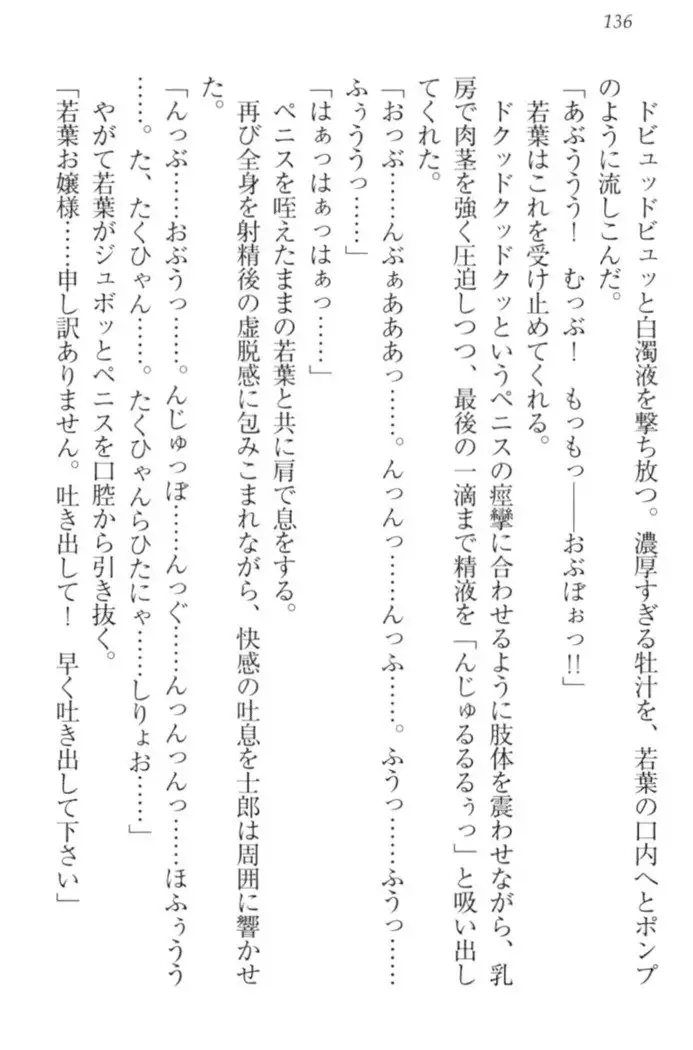 136
ドビュッドビュッと白濁液を撃ち放つ。濃厚すぎる牡汁を、若葉の口内へとポンプ
のように流しこんだ。
「あぶううう！　むっぶ！　もっもっ――おぶぼぉっ!!」
若葉はこれを受け止めてくれる。
ドクッドクッドクッというペニスの痙攣に合わせるように肢体を震わせながら、乳
房で肉茎を強く圧迫しつつ、最後の一滴まで精液を「んじゅるるるぅっ」と吸い出し
てくれた。
「おっぶ……んぶぁあああっ……。んっんっ……んっふ……。ふうっ……ふうっ……
ふぅううっ……」
「はぁっはぁっはぁっ……」
ペニスを咥えたままの若葉と共に肩で息をする。
再び全身を射精後の虚脱感に包みこまれながら、快感の吐息を士郎は周囲に響かせ
た。
「んっぶ……おぶうっ……。んじゅっぽ……んっぐ……んっんっんっ……ほふぅうう
……。た、たくひゃん……。たくひゃんらひたにゃ……しりょお……」
やがて若葉がジュボッとペニスを口腔から引き抜く。
「若葉お嬢様……申し訳ありません。吐き出して！　早く吐き出して下さい」